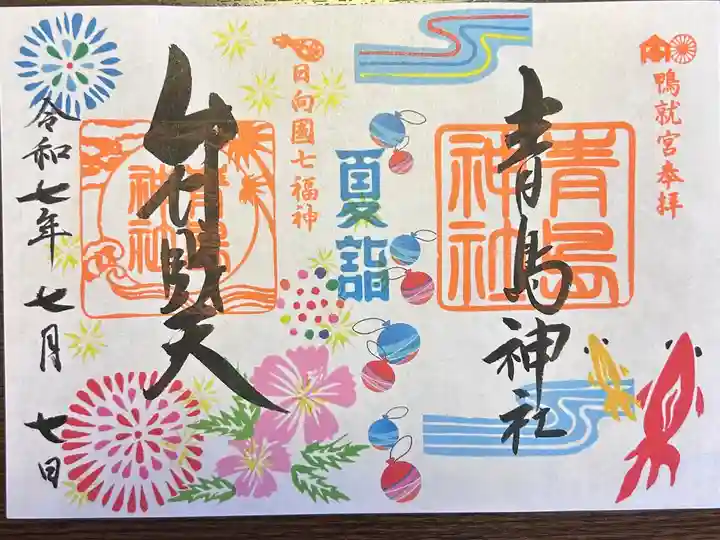 鴨就宮奉拝
青島神社
青島神社
夏詣
日向國七福神
弁財天
青島神社
令和七年 七月 七日